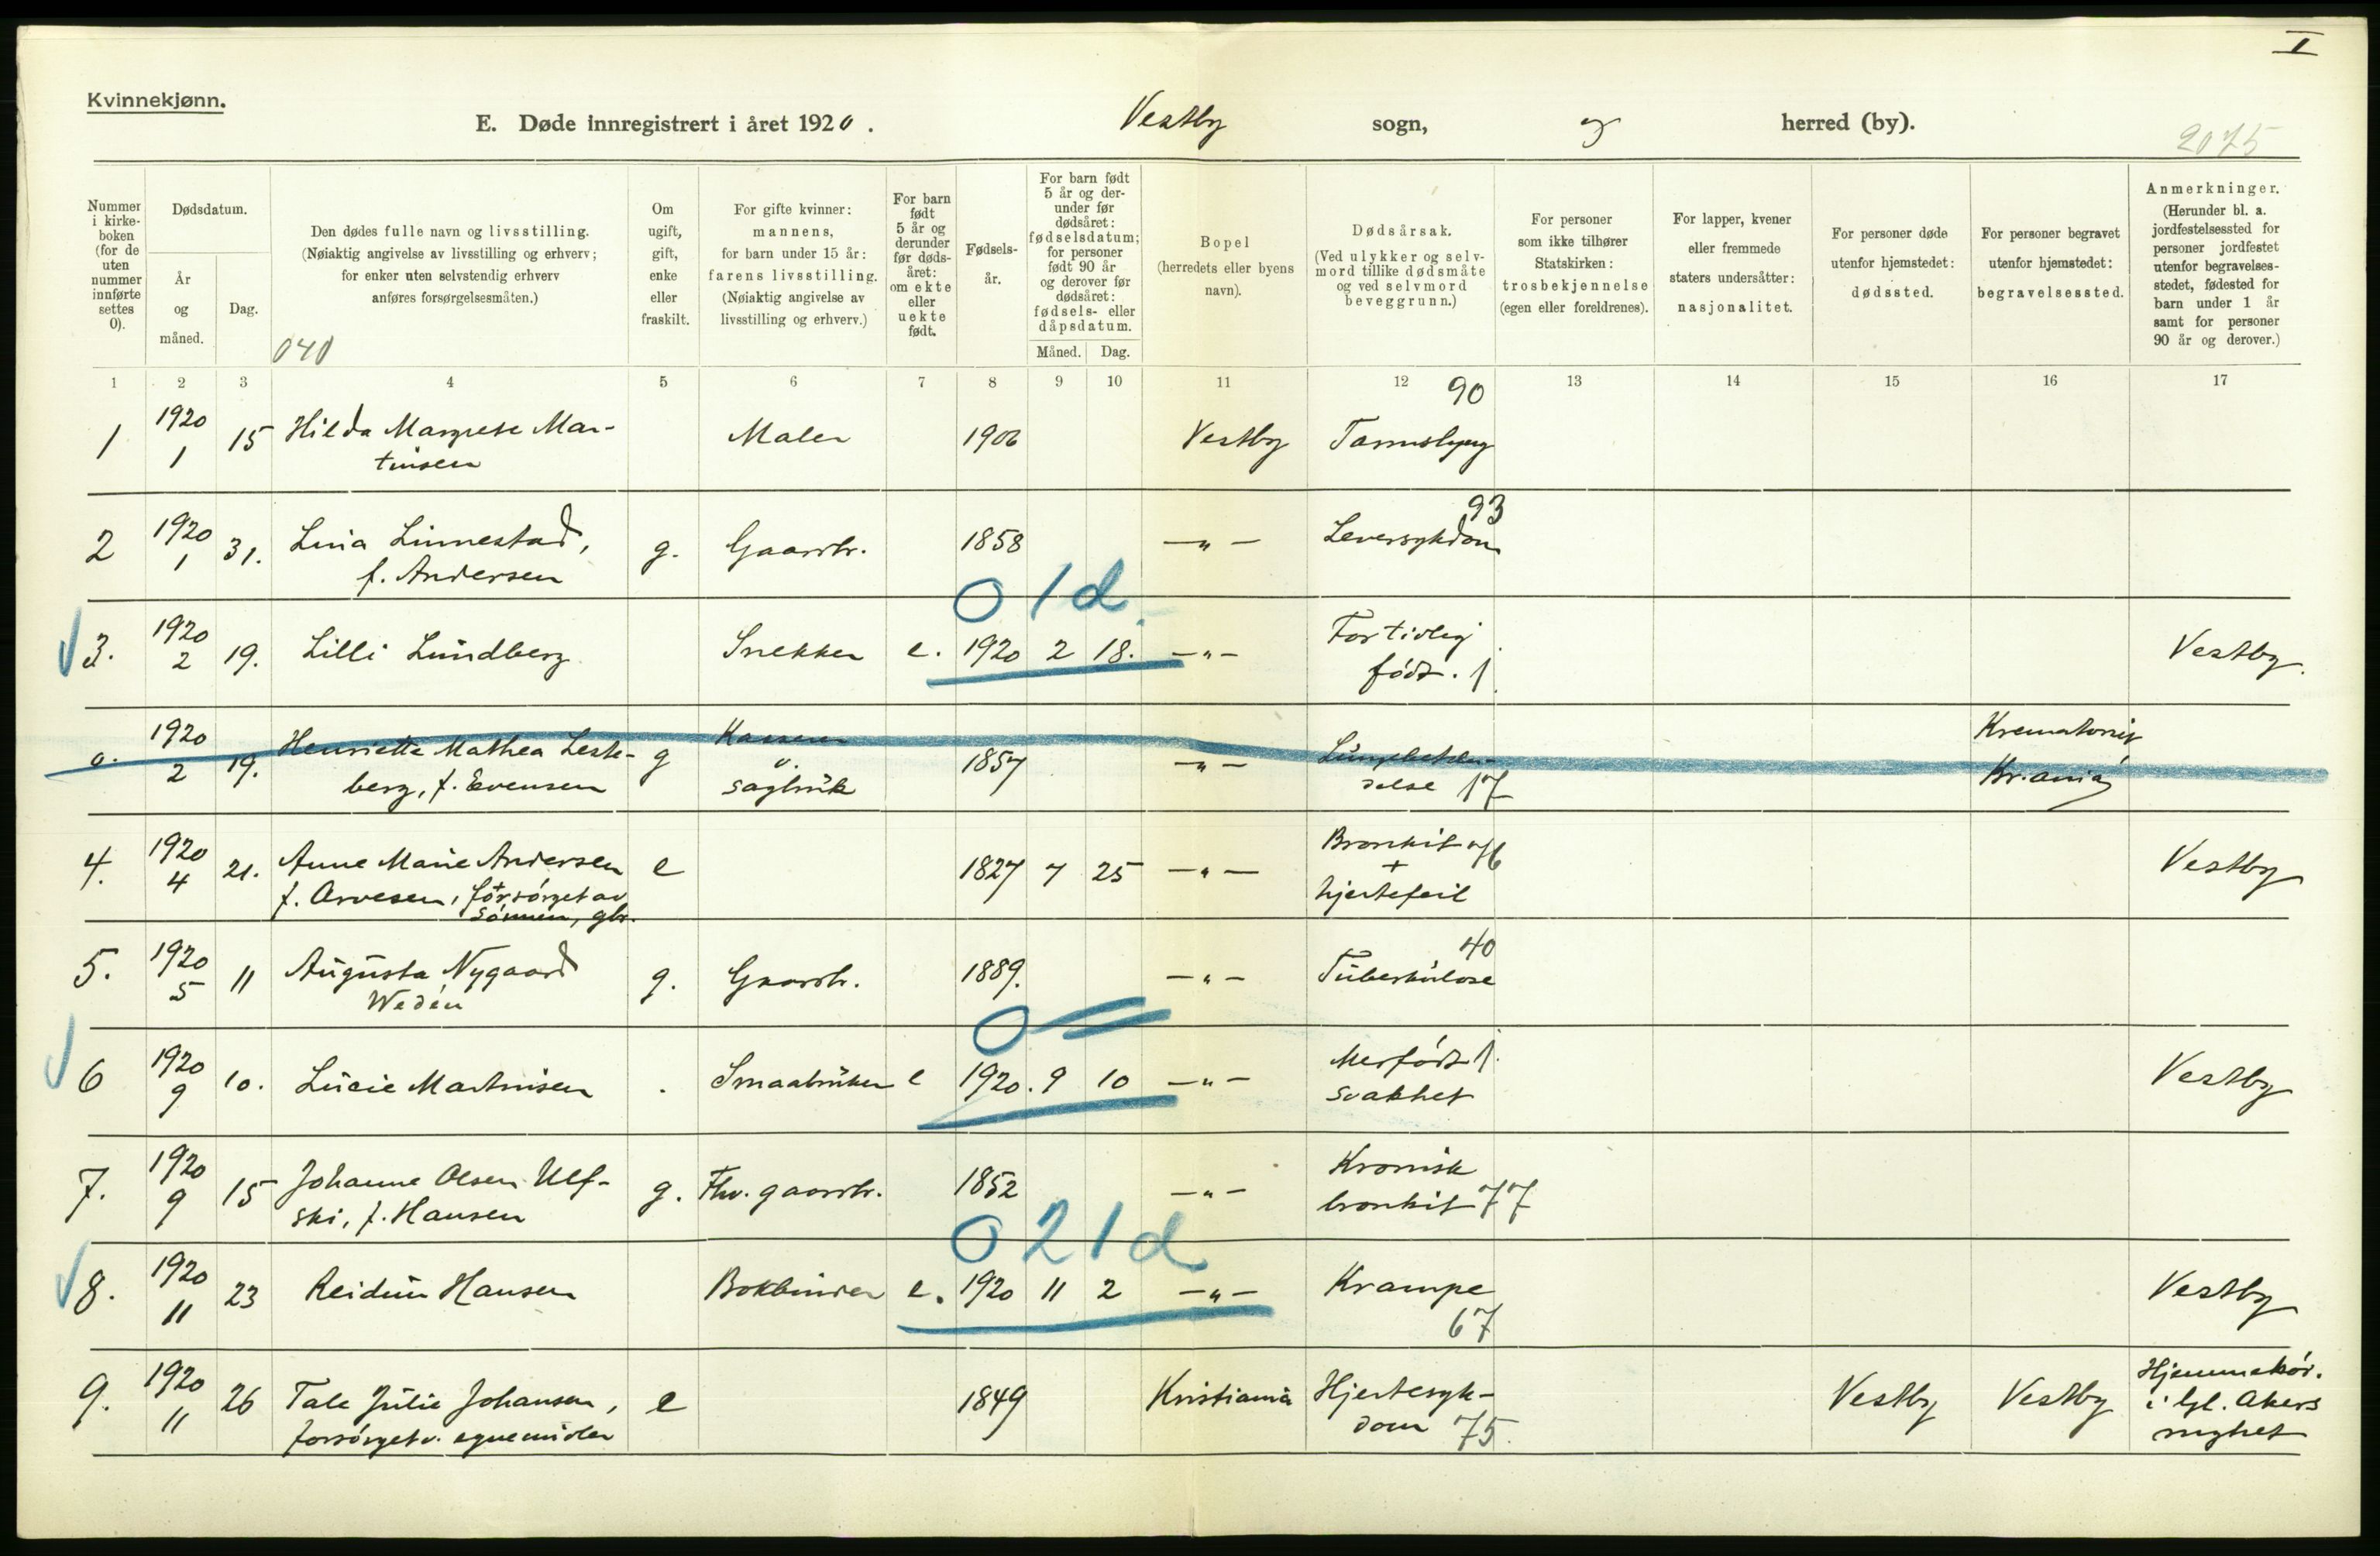 I
Kvinnekjønn.
E. Døde innregistrert i året 1920. Vestby sogn, og herred (by).
2075
Nummer i kirkeboken (for de uten nummer innførte settes 0).
Dødsdatum.
År og måned.
Dag.
Den dødes fulle navn og livsstilling.
(Nøiaktig angivelse av livsstilling og erhverv;
for enker uten selvstendig erhverv
anføres forsørgelsesmåten.)
040
Om ugift, gift, enke eller fraskilt.
For gifte kvinner: mannens,
for barn under 15 år: farens livsstilling.
(Nøiaktig angivelse av livsstilling og erhverv.)
For barn født 5 år og derunder før dødsåret: om ekte eller uekte født.
Fødselsår.
For barn født 5 år og derunder før dødsåret: fødselsdatum; for personer født 90 år og derover før dødsåret: fødsels- eller dåpsdatum.
Måned. Dag.
Bopel
(herredets eller byens navn).
Dødsårsak.
(Ved ulykker og selvmord tillike dødsmåte og ved selvmord beveggrunn.)
For personer som ikke tilhører Statskirken: trosbekjennelse
(egen eller foreldrenes).
For lapper, kvener eller fremmede staters undersåtter: nasjonalitet.
For personer døde utenfor hjemstedet: dødssted.
For personer begravet utenfor hjemstedet: begravelsessted.
Anmerkninger.
(Herunder bl. a. jordfestelsessted for personer jordfestet utenfor begravelsesstedet, fødested for barn under 1 år samt for personer 90 år og derover.)
1 2 3 4 5 6 7 8 9 10 11 12 13 14 15 16 17
90
1 1920 1 15 Hilda Margrete Mar-
tinsen Maler 1906 Vestby Tarmslyng
93
2 1920 1 31. Lina Linnestad,
f. Andersen g. Gaardbr. 1858 —"— Leversykdom
0 1d.
3. 1920 2 19. Lilli Lundberg Snekker e. 1920 2 18. —"— For tidlig
født. 1 Vestby.
0. 1920 2 19. Henriette Mathea Leste-
berg, f. Evensen g Kasserer
v.
sagbruk 1857 —"— Lungebeten-
delse 17 Krematoriet
Kr.ania
4. 1920 4 21. Anne Marie Andersen
f. Arvesen, forsørget av
sønnen, gbr. e 1827 7 25 —"— Bronkit 76
+
hjertefeil Vestby
40
5. 1920 5 11 Augusta Nygaard
Wedén g. Gaardbr. 1889. —"— Tuberkulose
0
6 1920 9 10. Lucie Martinisen Smaabruker e 1920. 9 10 —"— Medfødt 1.
svakhet Vestby
7. 1920 9 15 Johanne Olsen Ulf-
ski, f. Hansen g. Fhv. gaardbr. 1852 —"— Kronisk
bronkit 77
0 21d
8. 1920 11 23 Reidun Hansen Bokbinder e. 1920 11 2 —"— Krampe
67 Vestby
9. 1920 11 26 Tale Julie Johansen,
forsørget v. egne midler e 1849 Kristiania Hjertesyk-
dom 75. Vestby Vestby
i Gl. Akers